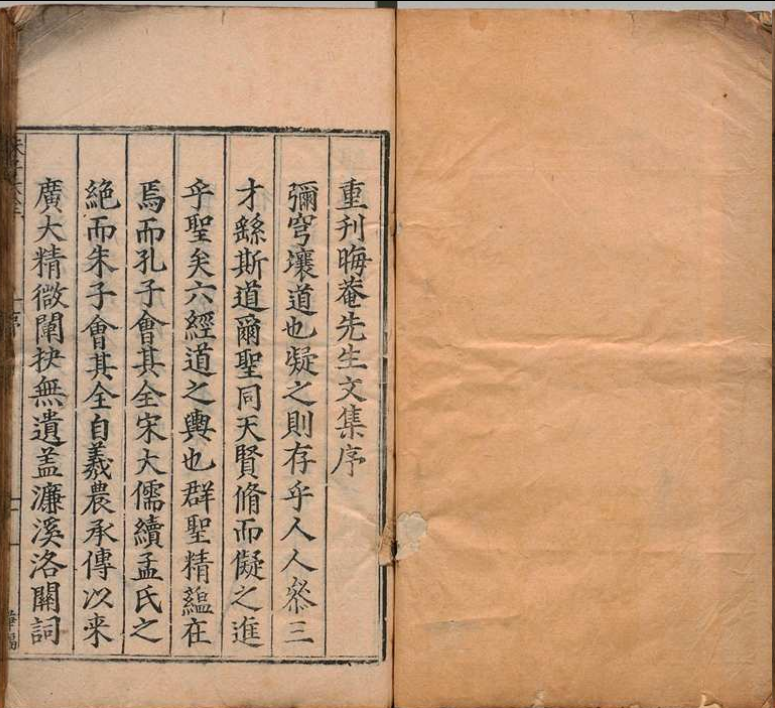 重刋晦菴先生文集序
彌穹壤道也凝之則存乎人人叅三
才繇斯道爾聖同天賢脩而儗之進
乎聖矣六經道之輿也群聖精蘊在
焉而孔子會其全宋大儒續孟氏之
絶而朱子會其全自羲農承傳以來
廣大精微闡抉無遺盖濂溪洛關詞
序